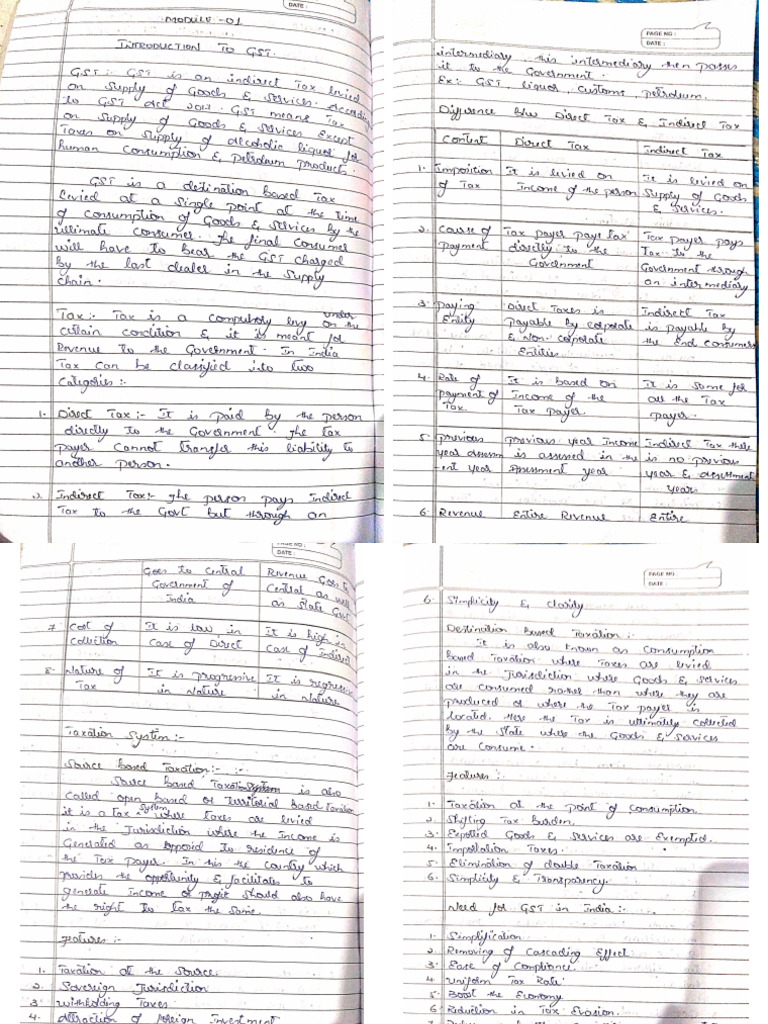 DATE :
MODULE -01
INTRODUCTION TO GST.
GST :- GST is an indirect Tax levied
on supply of Goods & services. According
to GST Act 2017. GST means Tax
on supply of Goods & services Except
Taxes on supply of alcoholic liquor for
human Consumption & petroleum product.
GST is a destination based Tax
levied at a single point at the time
of consumption of Goods & services by the
ultimate consumer. The final Consumer
will have to bear the GST charged
by the last dealer in the supply
chain.
Tax :- Tax is a compulsory levy under
certain condition & it is meant for
Revenue to the Government. In India
Tax can be classified into two
Categories :-
1. Direct Tax :- It is paid by the person
directly to the Government. The tax
payer cannot transfer this liability to
another person.
2. Indirect Tax :- The person pays Indirect
Tax to the Govt but through an
PAGE NO :
DATE :
intermediary, this intermediary then passes
it to the Government.
Ex :- GST, liquor, customs, petroleum.
Difference b/w Direct Tax & Indirect Tax
Content Direct Tax Indirect Tax
1. Imposition It is levied on It is levied on
of Tax Income of the person Supply of Goods
& Services.
2. Cause of Tax payer pays tax Tax payer pays
payment directly to the Tax to the
Government Government through
an intermediary
3. paying Direct Taxes is Indirect Tax
Entity payable by corporate is payable by
& Non-corporate the End consumers
Entities
4. Rate of It is based on It is same for
payment of Income of the all the Tax
Tax. Tax payer. payer.
5. previous previous year Income Indirect Tax there
year assessm is assessed in the is no previous
ent year Assessment year year & assessment
years
6. Revenue Entire Revenue Entire
PAGE NO :
DATE :
Goes to Central Revenue Goes to
Government of Central as well
India as State Govt
7. Cost of It is low in It is high in
Collection case of Direct case of Indirect
8. Nature of It is progressive It is regressive
Tax in nature in Nature
Taxation System :-
Source based Taxation :-
Source based Taxation System is also
called open based or Territorial based Taxation
it is a tax system where taxes are levied
in the Jurisdiction where the Income is
Generated as opposid to residence of
the Tax payer. In this the country which
provides the opportunity & facilitates to
generate Income or profit should also have
the right to tax the same.
Features :-
1. Taxation at the Source.
2. Sovereign Jurisdiction
3. withholding Taxes
4. Attraction of Foreign Investment
PAGE NO :
DATE :
6. Simplicity & clarity
Destination Based Taxation :-
It is also known as Consumption
based Taxation where Taxes are levied
in the Jurisdiction where Goods & services
are consumed rather than where they are
produced or where the Tax payer is
located. Here the Tax is ultimately collected
by the state where the Goods & Services
are Consume.
Features :-
1. Taxation at the point of consumption.
2. Shifting Tax Burden.
3. Exported Goods & Services are Exempted.
4. Importation Taxes.
5. Elimination of double Taxation
6. Simplicity & Transparency.
Need for GST in India :-
1. Simplification
2. Removing of Cascading Effect
3. Ease of Compliance.
4. Uniform Tax Rate
5. Boost the Economy
6. Reduction in Tax Evasion.